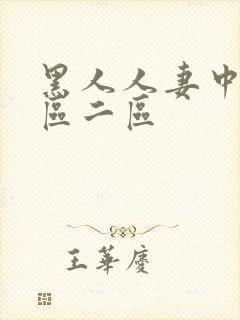 黑人人妻中
區二區
王華慶